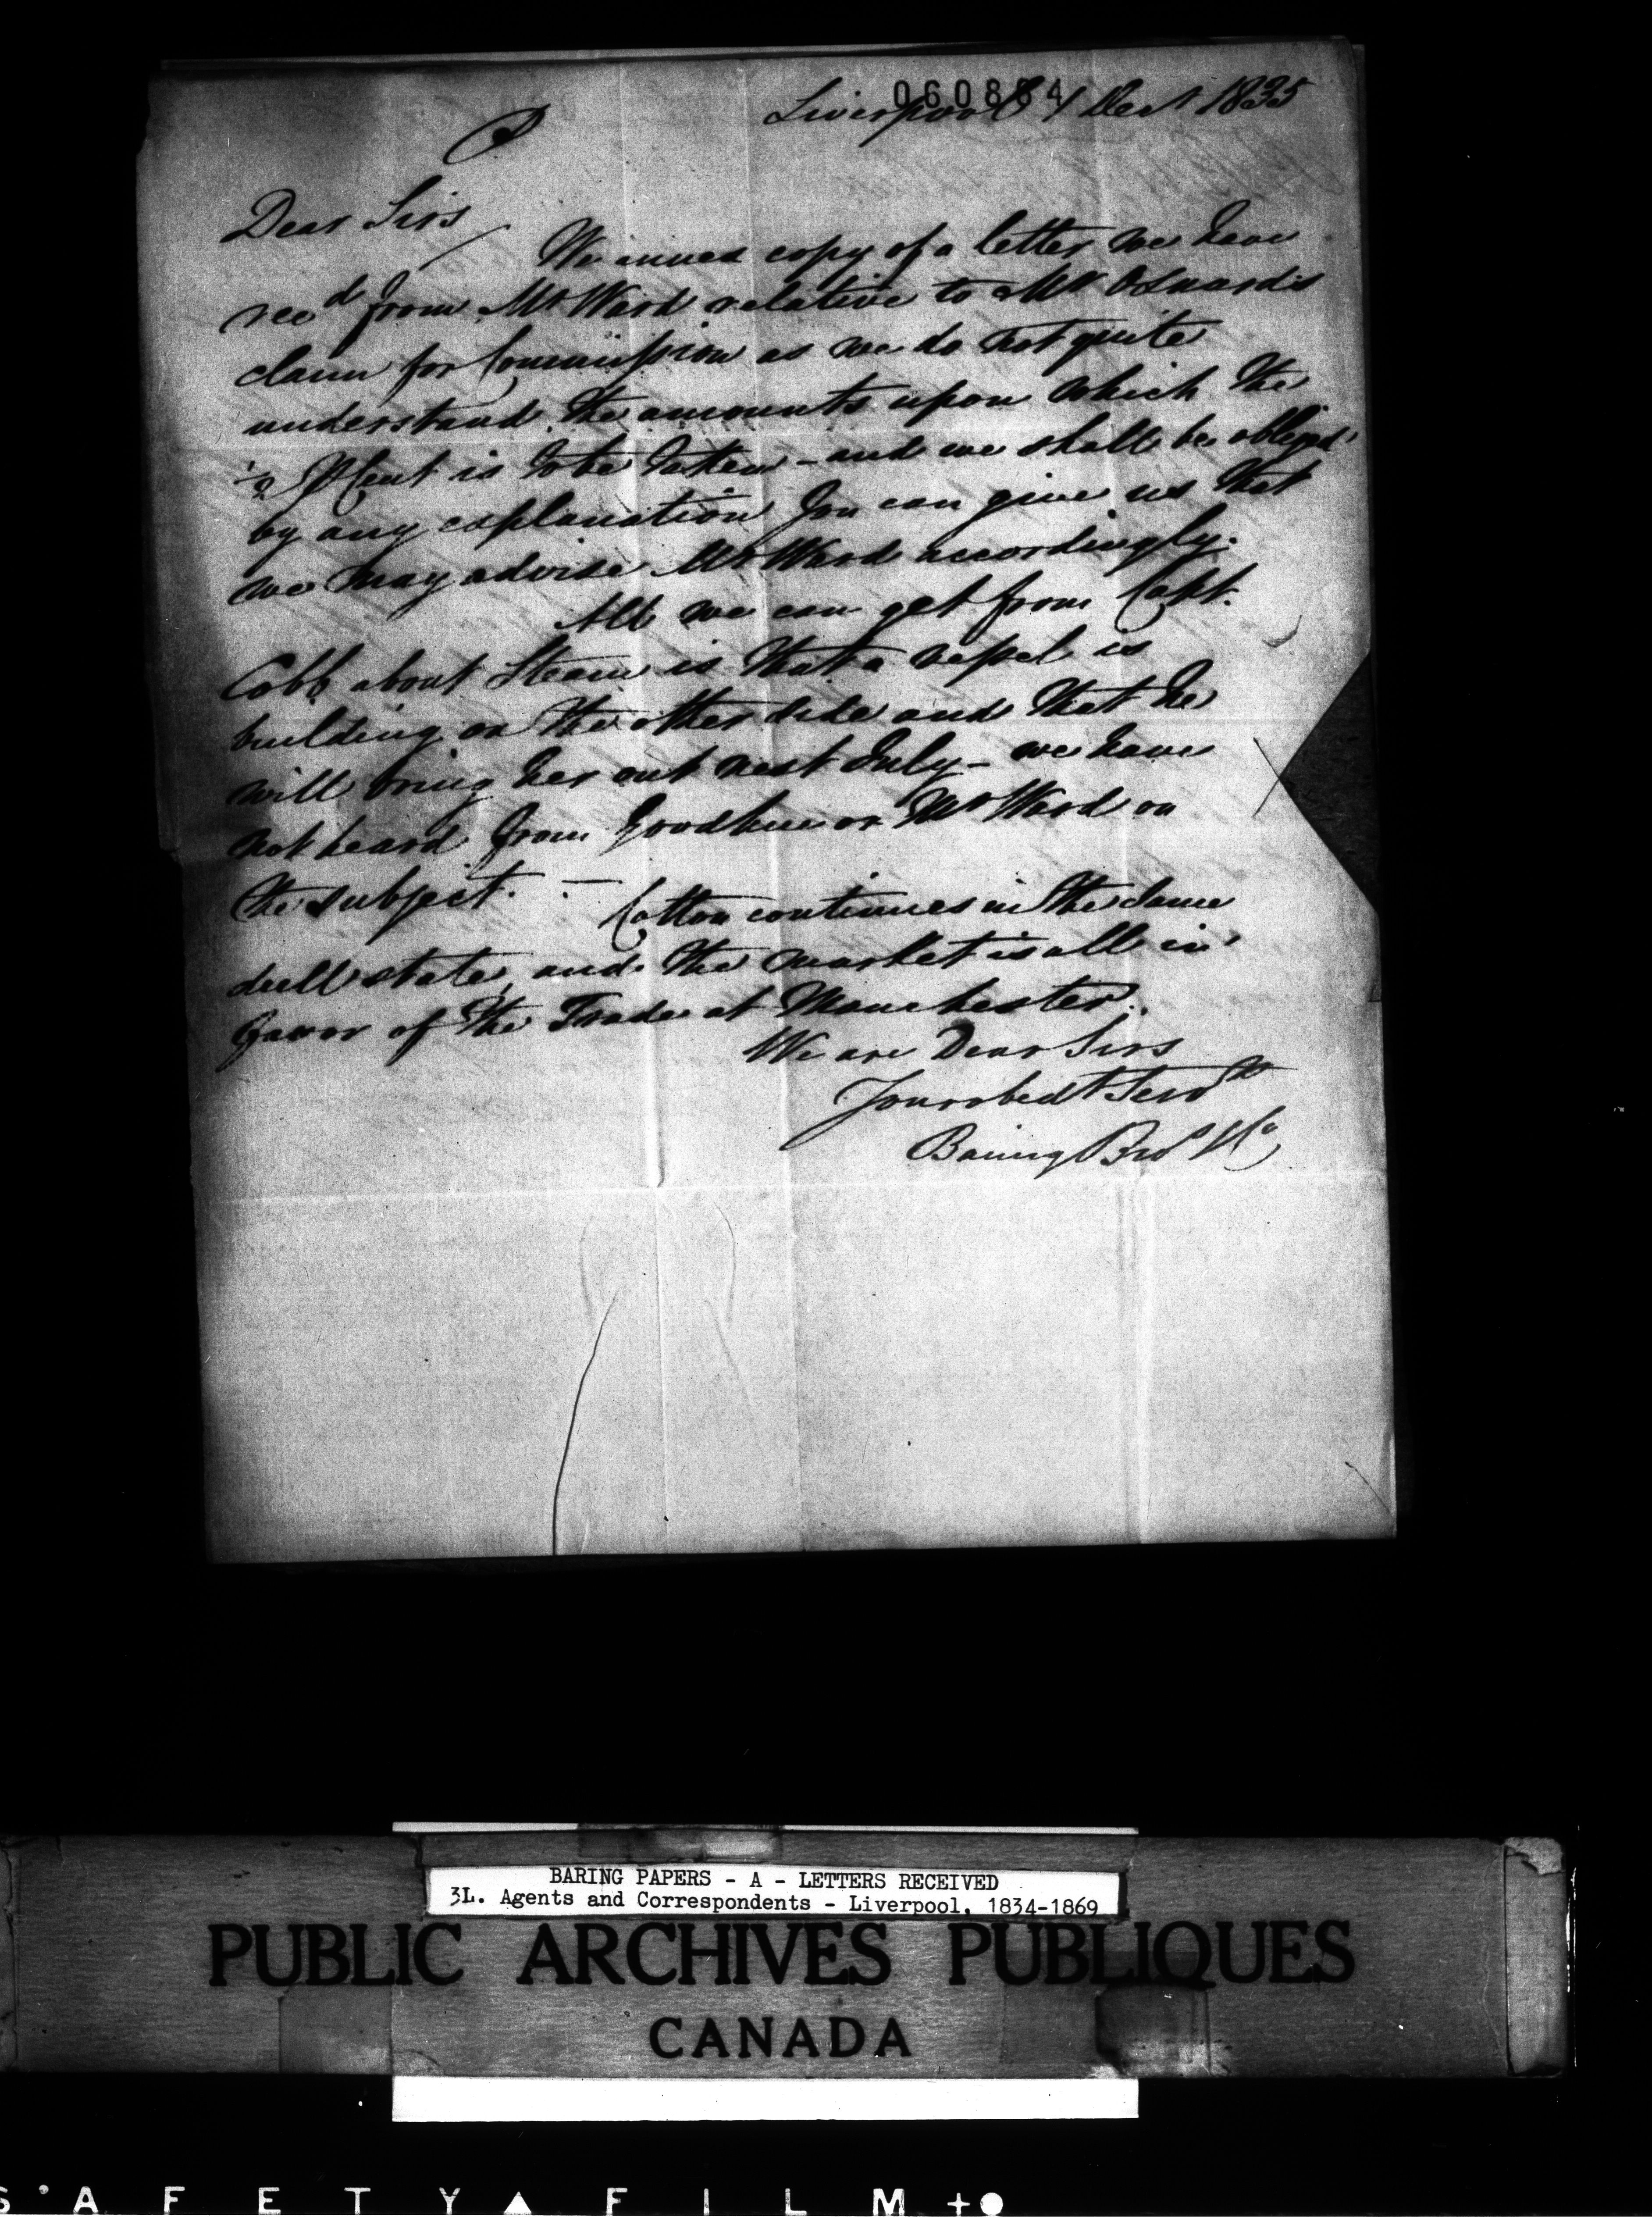 060884
Liverpool 1 Dec 1835
P
Dear Sirs
We annex copy of a letter we have
recd from Mr Ward relative to Mr
claim for Commission as we do not quite
understand the amounts upon which the
1/2 P Cent is to be taken - and we shall be obliged
by any explanation you can give us that
we may advise Mr Ward accordingly.
All we can get from Capt.
Cobb about Steam is that a vessel is
building on the other side and that he
will bring her out next July - we have
not heard from Goodhue or Mr Ward on
the subject. —
Cotton continues in the same
dull state, and the market is all in
favor of the Trade at Manchester.
We are Dear Sirs
Your obedt Servts
Baring Bros & Co
BARING PAPERS - A - LETTERS RECEIVED
3L. Agents and Correspondents - Liverpool, 1834-1869
PUBLIC ARCHIVES PUBLIQUES
CANADA
S'AFETY▲FILM+●